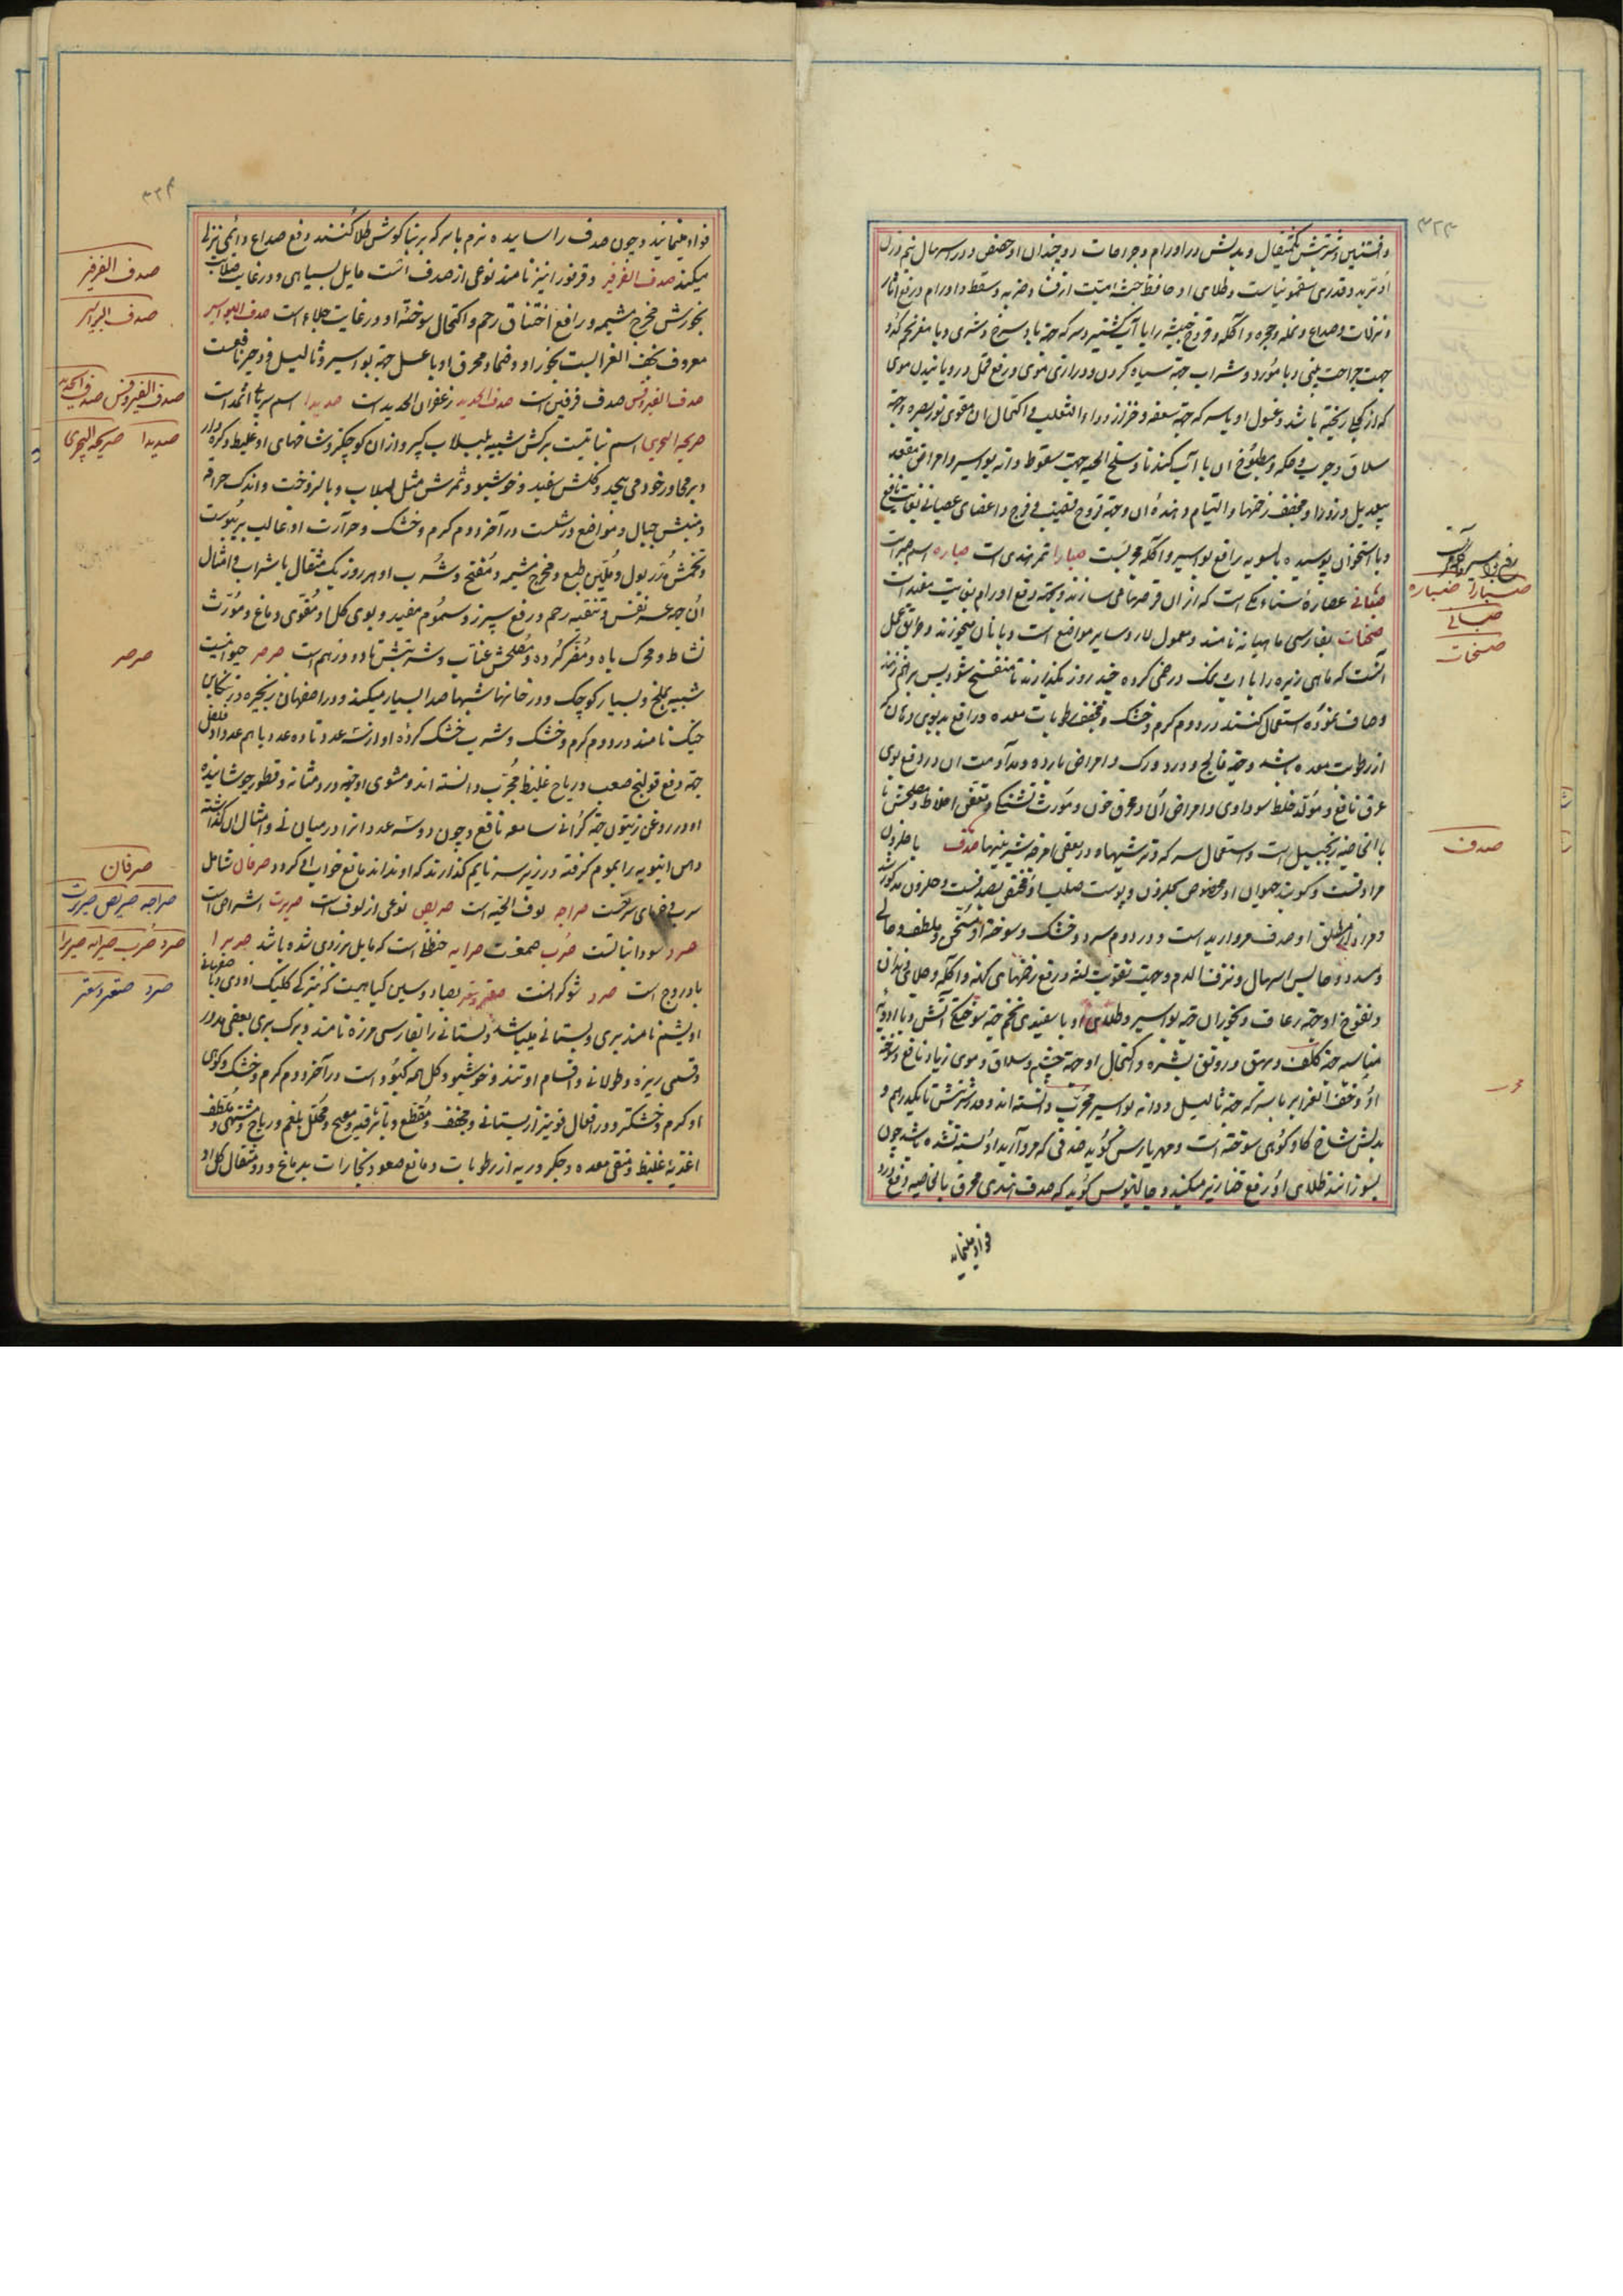 ۳۲۳
وافسنتین و شربتش یکمثقال و بدلش در اورام و جراحات دو چندان او حضض و در اسهال نیم وزن
او تربد و قدری سقمونیاست و طلای او حافظ جثه میت از فساد و ضربه و سقطه و اورام و رفع آثار
و نزلات و صداع و نمله و جمره و آکله و قروح خبیثه را با آب گشنیز و سرکه جهة باد سرخ و شری و با
جهت جراحت بینی و با مورد و شراب جهة سیاه کردن و درازی موی و رفع قمل و رویانیدن موی
که از کچلی ریخته باشد و غسول او با سرکه جهة سعفه و حزاز و داء الثعلب و اکتحال آن مقوی نور بصر و جهة
سلاق و جرب و حکه و مطبوخ آن با آب گندنا و سلخ الحیه جهت سقوط دانه بواسیر و امراض مقعد
بیعدیل و ذرور او مجفف زخمها و التیام دهنده آن و جهة قروح قضیب و فرج و اعضای عصبانی بغایت نافع
و با استخوان پوسیده بالسویه رافع بواسیر و آکله مجربست صبارا تمر هندی است صباره اسم صبر است
صبائی عصاره سناء مکی است که از آن قرصها می سازند و جهة رفع اورام بغایت مفید است
صحنات بفارسی ماهیانه نامند و معمول لار و سایر مواضع است و با نان میخورند و طریق عمل
آنست که ماهی ریزه را با آب نمک در خمی کرده چند روز بگذارند تا متفسخ شود پس بر هم زده
و صاف نموده استعمال کنند در دوم گرم و خشک و مجفف رطوبات معده و رافع بدبوی دهان که
از رطوبت معده باشد و جهة فالج و درد ورک و امراض بارده و مداومت آن در رفع بوی
عرق نافع و مولد خلط سوداوی و امراض آن و محرق خون و مورث تشنگی و تعفن اخلاط و مصلحش
بالخاصیه زنجبیل است و استعمال سرکه و ترشیها و در بعضی امزجه شیرینیها صدف با حلزون
مرادفست و گویند حیوان او مخصوص بحلزون و پوست صلب او مختص بصدفست و حلزون مذکور شد
و مراد از مطلق او صدف مروارید است و در دوم سرد و خشک و سوخته او مسخن و ملطف و جالی
و مسدد و حابس اسهال و نزف الدم و جهت تقویت لثه و رفع زخمهای کهنه و آکله و جلای دندان
و نفوخ او جهة رعاف و بخور آن جهة بواسیر و طلای او با سفیدی تخم جهة سوختگی آتش و با ادویه
مناسبه جهة کلف و بهق و رونق بشره و اکتحال او جهة چشم و سلاق و موی زیاد نافع و سوخته
او و خف الغراب با سرکه جهة ثالیل و دانه بواسیر مجرب دانسته اند و قدر شربتش تا یکدرهم و
بدلش شاخ گاو کوهی سوخته است و مهریارس گوید صدفی که مروارید او بسته نشده باشد چون
بسوزانند طلای او رفع خنازیر میکند و جالینوس گوید که صدف هندی محرق بالخاصیه رفع درد
فواد مینماید
صبارا صباره
صبائی
صحنات
صدف
۳۲۴
فواد مینماید و چون صدف را سائیده نرم با سرکه بر بناگوش طلا کنند رفع صداع دائمی نزلی
میکند صدف الفرفیر و قرفور نیز نامند نوعی از صدف است مایل بسیاهی و در غایت صلابت
بخورش مخرج مشیمه و رافع اختناق رحم و اکتحال سوخته او در غایت جلاء است صدف البواسیر
معروف بخف الغرابست بخور او و ضماد محرق او با عسل جهة بواسیر و ثالیل و زحیر نافعست
صدف الفیروفس صدف فرفیر است صدف الحدید زعفران الحدید است صدیدا اسم سریانی اثمد است
صریحه البحری اسم نباتیست برگش شبیه بلبلاب کبیر و از آن کوچکتر و شاخهای او غلیظ و گره دار
و بر مجاور خود می پیچد و گلش سفید و خوشبو و ثمرش مثل لبلاب و بالزوجت و اندک حرافه
و منبتش جبال و مواضع درشت در آخر دوم گرم و خشک و حرارت او غالب بر یبوست
و تخمش مدر بول و ملین طبع و مخرج مشیمه و مفتح و شرب او هر روز یک مثقال با شراب و امثال
آن جهة عسر نفس و تنقیه رحم و رفع سپرز و سموم مفید و بوی گل او مقوی دماغ و مورث
نشاط و محرک باه و مضر گرده و مصلحش عناب و شربتش تا دو درهم است صرصر حیوانیست
شبیه بملخ و بسیار کوچک و در خانها شبها صدا بسیار میکند و در اصفهان زنجیره و در تنکابن
جیک نامند در دوم گرم و خشک و شرب خشک کرده او از سه عدد تا ده عدد با هم عدد او فلفل
جهة رفع قولنج صعب و ریاح غلیظ مجرب دانسته اند و مشوی او جهة درد مثانه و قطور جوشانیده
او در روغن زیتون جهة گرانی سامعه نافع و چون دو سه عدد آنرا در میان نی و امثال آن گذاشته
و سر انبوبه را بموم گرفته در زیر سر نایم گذارند که او نداند مانع خواب او گردد صرفان شامل
سرب و خرمای سرخست صراجه لوف الحیه است صریص نوعی از لوف است صریرت اشراس است
صرد سودانیاتست صرب صمغست صرایه حنظل است که مایل بزردی شده باشد صریرا
بادروج است صرد شوکرانست صعتر و سعتر بصاد و سین گیاهیست که بترکی ککلیک اودی و باصفهانی
اویشم نامند بری و بستانی میباشد و بستانی را بفارسی مرزه نامند و برگ بری بعضی مدور
و قسمی ریزه و طولانی و اقسام او تند و خوشبو و گل همه کبود است در آخر دوم گرم و خشک و کوهی
او گرم و خشکتر و در افعال قویتر از بستانی و مجفف و مقطع و با تریاقیه و مهیج و محلل بلغم و ریاح و مشتهی و ملطف
اغذیه غلیظ و منقی معده و جگر و ریه از رطوبات و مانع صعود بخارات بدماغ و دو مثقال گل او
صدف الفرفیر
صدف البواسیر
صدف الفیروفس صدف الحدید
صدیدا صریحه البحری
صرصر
صرفان
صراجه صریص صریرت
صرد صرب صرایه صریرا
صرد صعتر و سعتر